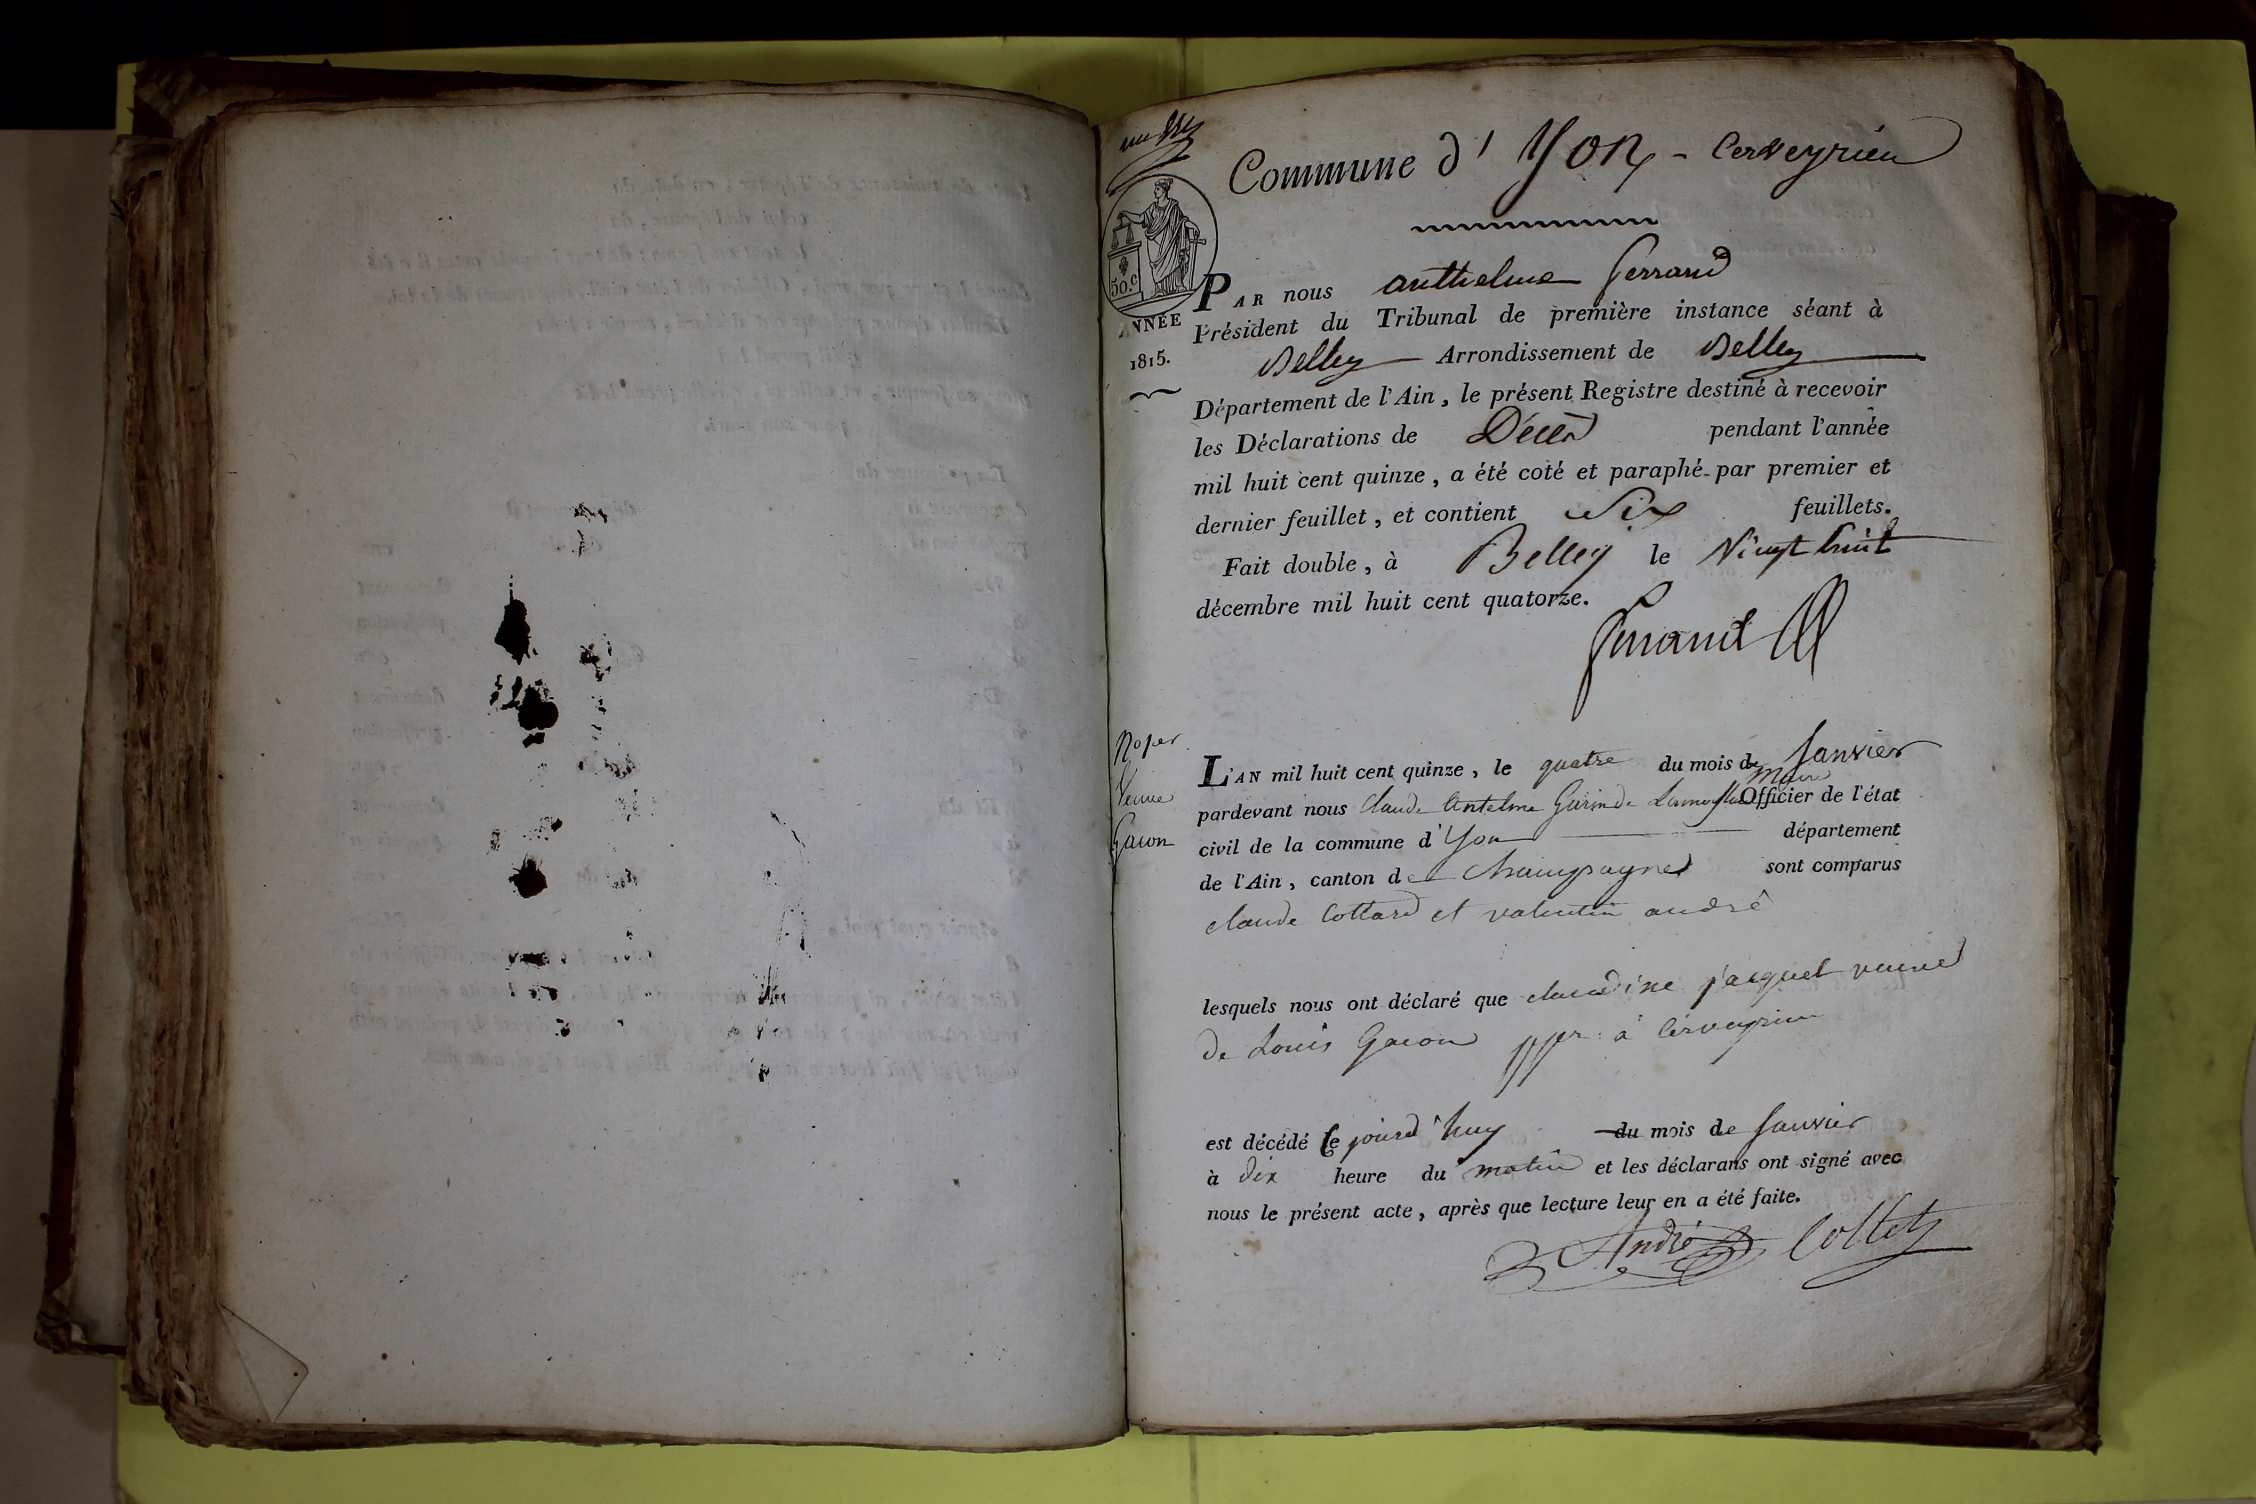 Commune d' Yon - Cerveyrieu
50.c
ANNÉE
1815.
PAR nous anthelme ferrand
Président du Tribunal de première instance séant à
Belley Arrondissement de Belley
Département de l'Ain, le présent Registre destiné à recevoir
les Déclarations de Décès pendant l'année
mil huit cent quinze, a été coté et paraphé par premier et
dernier feuillet, et contient Six feuillets.
Fait double, à Belley le Vingt huit
décembre mil huit cent quatorze.
ferrand
No 1er
Veuve
Gacon
L'AN mil huit cent quinze, le quatre du mois de Janvier
pardevant nous Claude Antelme Guerin de maire Officier de l'état
civil de la commune d'Yon département
de l'Ain, canton de Champagne sont comparus
claude Cottard et valentin andré
lesquels nous ont déclaré que claudine jacquet veuve
de Louis Gacon à Cerveyrieu
est décédé Ce jourd'huy du mois de Janvier
à dix heure du matin et les déclarans ont signé avec
nous le présent acte, après que lecture leur en a été faite.
André